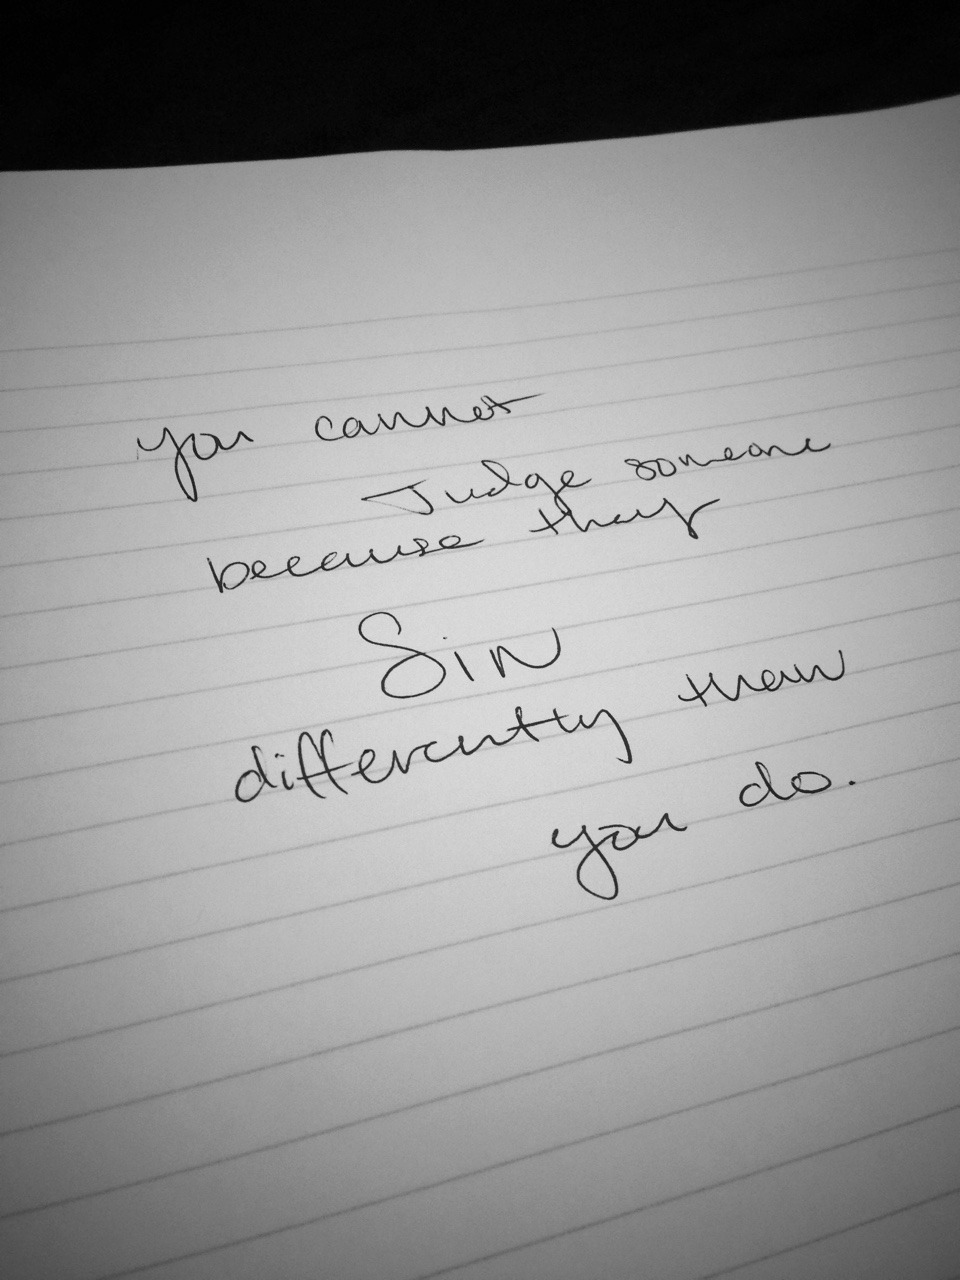 you cannot
Judge someone
because they
Sin
differently than
you do.